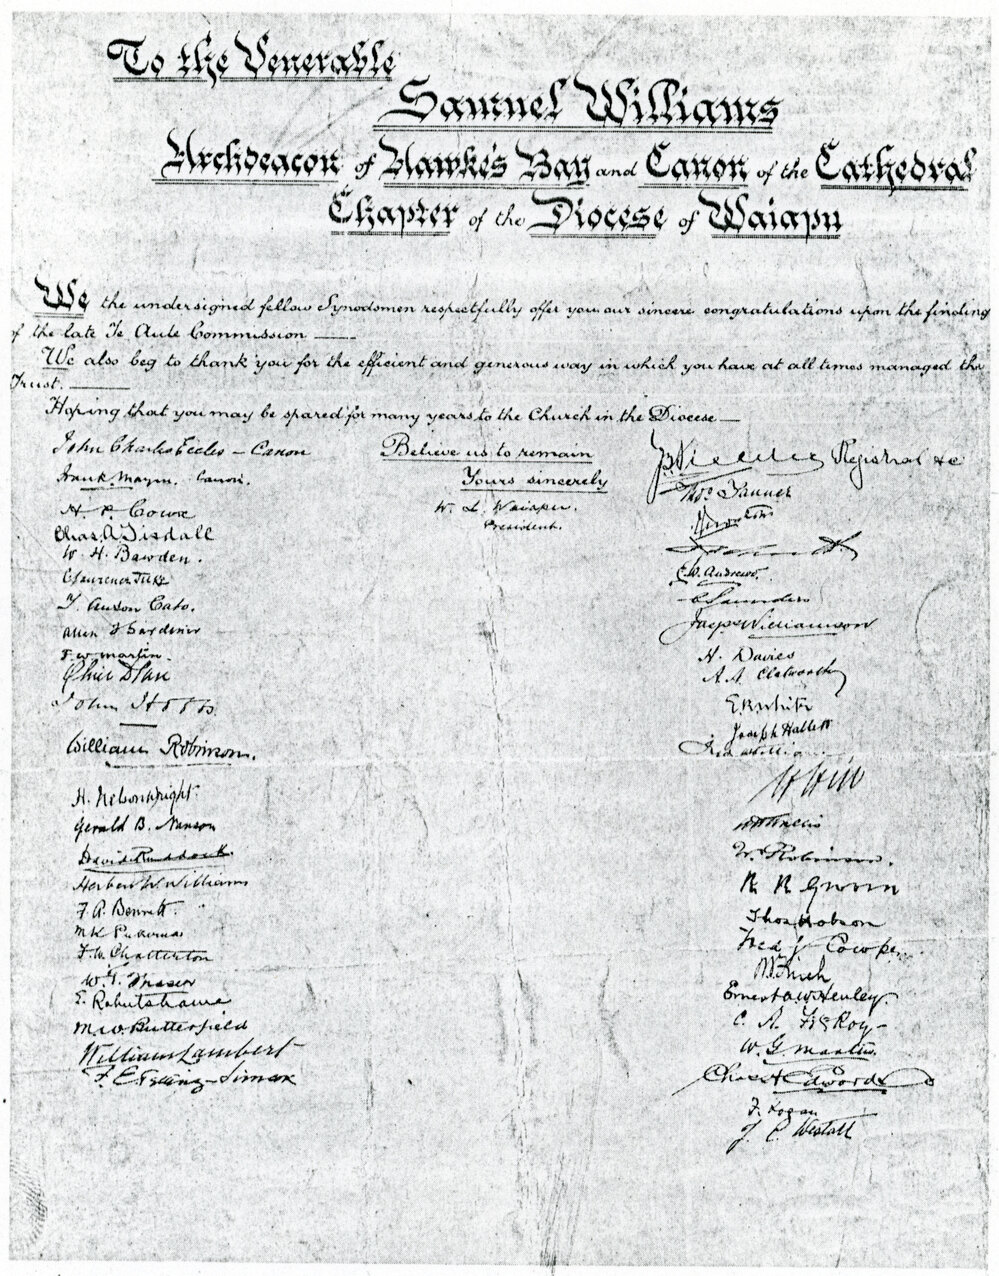 To the Venerable
Samuel Williams
Archdeacon of Hawke's Bay and Canon of the Cathedral
Chapter of the Diocese of Waiapu
We the undersigned fellow Synodsmen respectfully offer you our sincere congratulations upon the finding
of the late Te Aute Commission
We also beg to thank you for the efficient and generous way in which you have at all times managed the
Trust.
Hoping that you may be spared for many years to the Church in the Diocese
Believe us to remain
Yours sincerely
W. L. Waiapu.
President.
John Charles Eccles - Canon
Frank Mayne. Canon.
H. Cowx
Chas. A. Tisdall
W. H. Bawden.
T. Anson Cato.
Allen Gardiner
F. W. Martin.
John Hobbs.
William Robinson.
H. Nelson Wright.
Gerald B. Nanson
David Ruddock.
Herbert W. Williams
F. A. Bennett.
F. W. Chatterton
W. J. Fraser
E. Robertshawe
M. W. Butterfield
William Lambert
Simcox
Registrar &c
Thos. Tanner
E. W. Andrews.
Saunders
Williamson
H. Davies
A. A. Clatworthy
E. R. White
Joseph Hallett
W. Robinson.
Thos Hobson
Fred J Cowper
Ernest A. W. Henley.
C. A. FitzRoy
W. G. Martin.
Chas H Edwards
F. Logan
J. C. Westall